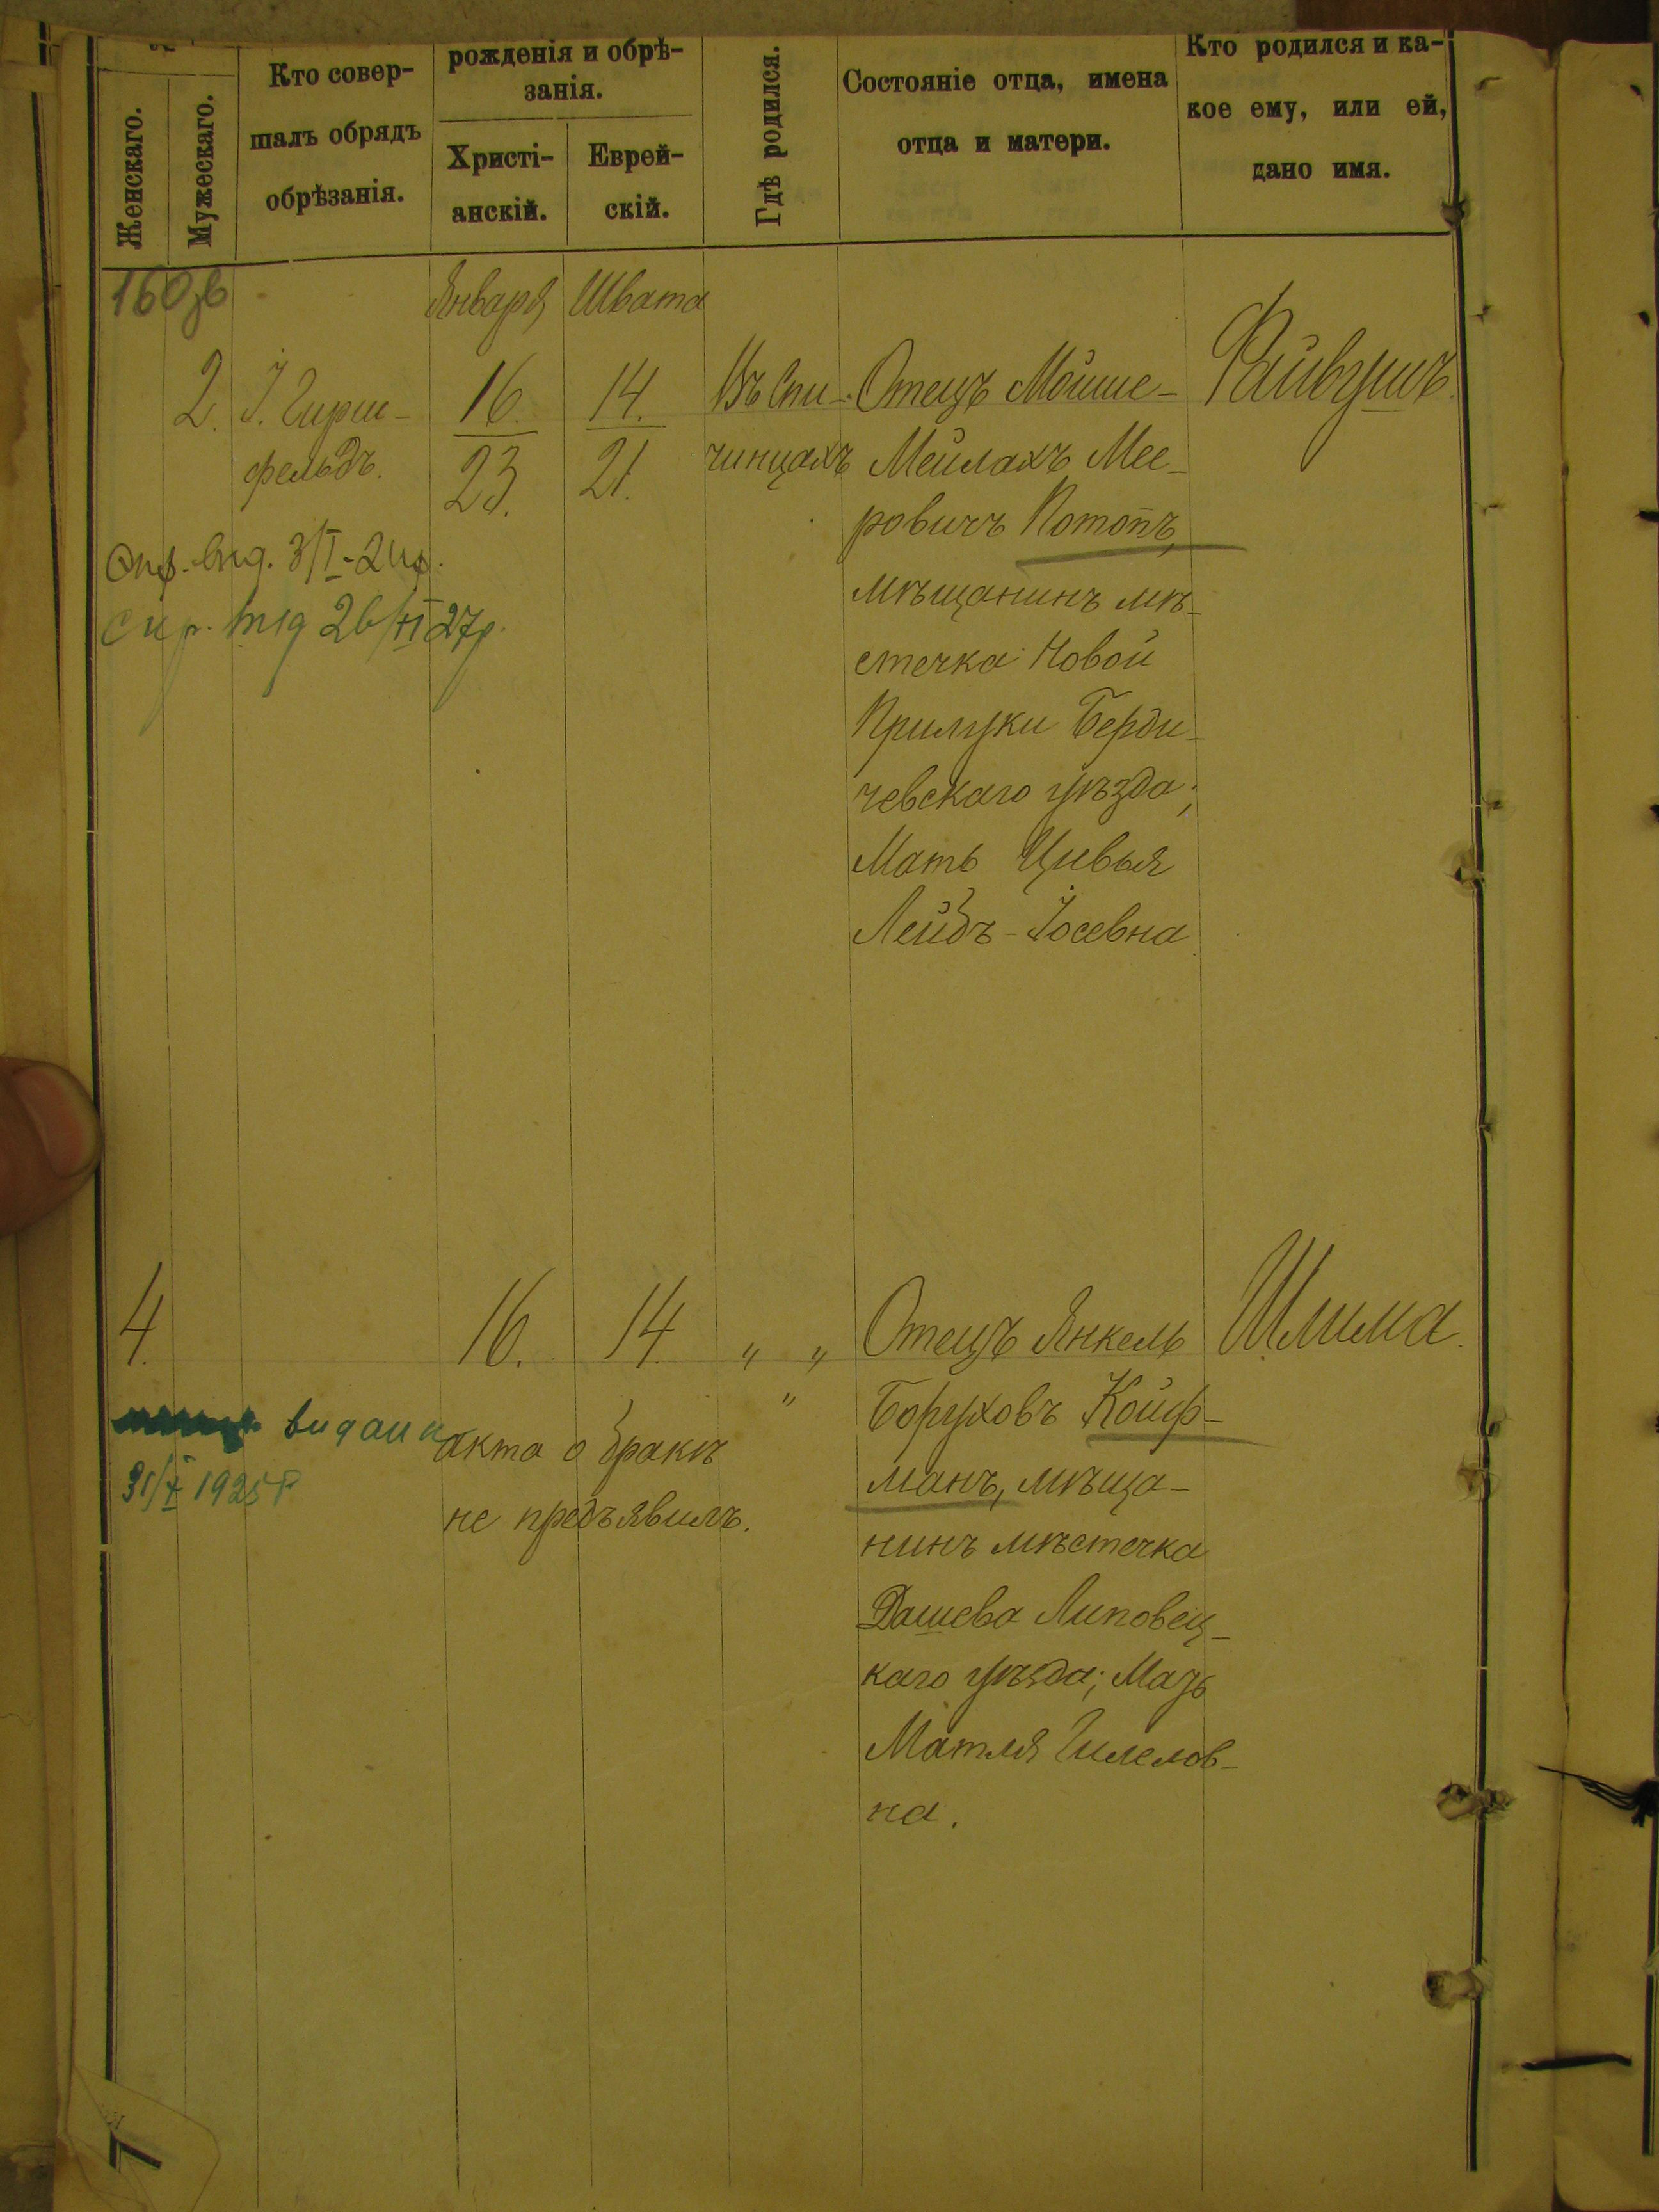 Женскаго.
Мужескаго.
Кто совер-
шалъ обрядъ
обрѣзанія.
рожденія и обрѣ-
занія.
Христі-
анскій.
Еврей-
скій.
Гдѣ родился.
Состояніе отца, имена
отца и матери.
Кто родился и ка-
кое ему, или ей,
дано имя.
160зв
Января Швата
2. І. Гирш-
фельдъ.
16.
23.
14.
21.
Въ Спи-
чинцахъ
Отецъ Мойше-
Мейлахъ Мее-
ровичъ Потопъ,
мѣщанинъ мѣ-
стечка Новой
Прилуки Берди-
чевскаго уѣзда;
Мать Цивья
Лейбъ-Іосевна
Файвушъ.
вид. 3/I-24р.
вид 26/VI 27р.
4.
16. 14. " "
"
Отецъ Янкель
Боруховъ Койф-
манъ, мѣща-
нинъ мѣстечка
Дашева Липовец-
каго уѣзда; Мать
Матля Гилелов-
на.
Шлима.
видана
31/X 1925р
акта о бракѣ
не предъявилъ.